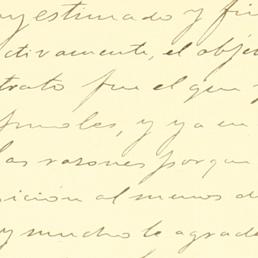 y estimado y fi
ctivamente, el obje
trato fue el que
y ya en
las razones porque
sición al menos de
y mucho le agrade